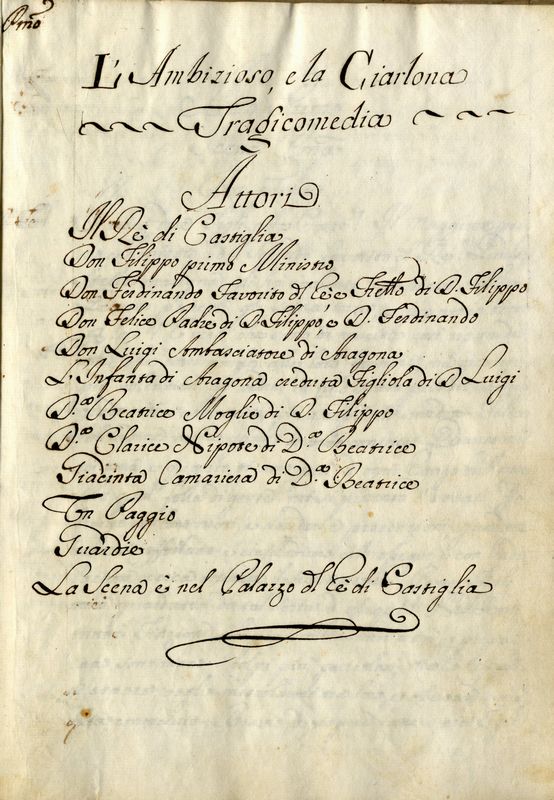 Pmo
L'Ambizioso, e la Ciarlona
Tragicomedia
Attori
Il Rè di Castiglia
Don Filippo primo Ministro
Don Ferdinando Favorito dl Rè e Frello di D. Filippo
Don Felice Padre di D. Filippo e D. Ferdinando
Don Luigi Ambasciatore di Aragona
L'Infanta di Aragona creduta Figliola di D Luigi
D.a Beatrice Moglie di D. Filippo
D.a Clarice Nipote di D.a Beatrice
Giacinta Camariera di D.a Beatrice
Un Paggio
Guardie
La Scena è nel Palazzo dl Rè di Castiglia